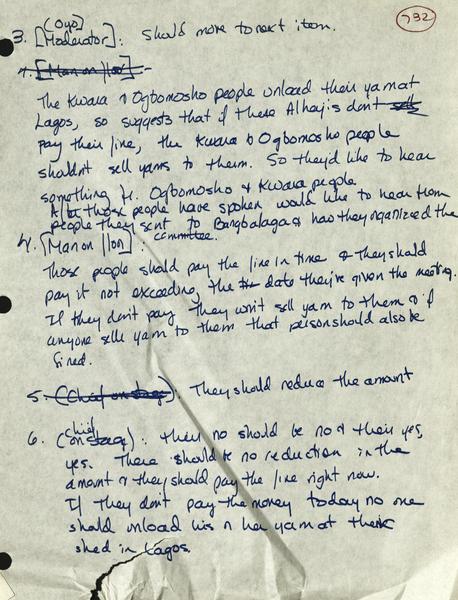 732
(Oyo)
3. [Moderator]: Should move to next item.
4. [Man on floor]
The Kwara & Ogbomosho people unload their yam at
Lagos, so suggests that if these Alhajis don't sell
pay their fine, the Kwara & Ogbomosho people
shouldn't sell yams to them. So they'd like to hear
something fr. Ogbomosho & Kwara people.
After those people have spoken would like to hear from
people they sent to Bangbalaga & how they organized the
committee.
4. [Man on floor]:
Those people should pay the fine in time & they should
pay it not exceeding the the date they're given the meeting.
If they don't pay they won't sell yam to them & if
anyone sells yam to them that person should also be
fined.
5. (Chief on stage): They should reduce the amount
6. (chief on stage): their no should be no & their yes,
yes. There should be no reduction in the
amount & they should pay the fine right now.
If they don't pay the money today no one
should unload his or her yam at their
shed in Lagos.